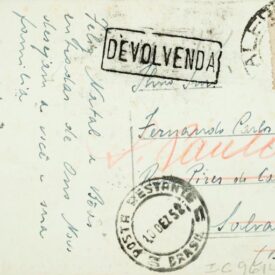 Feliz Natal e Bôas
entradas de Ano Novo
desejam a você e sua
família
DEVOLVENDA
Fernando Carlos
S. Paulo
R. Pires de
Salva
POSTA RESTANTE
DEZ 5
BRASIL